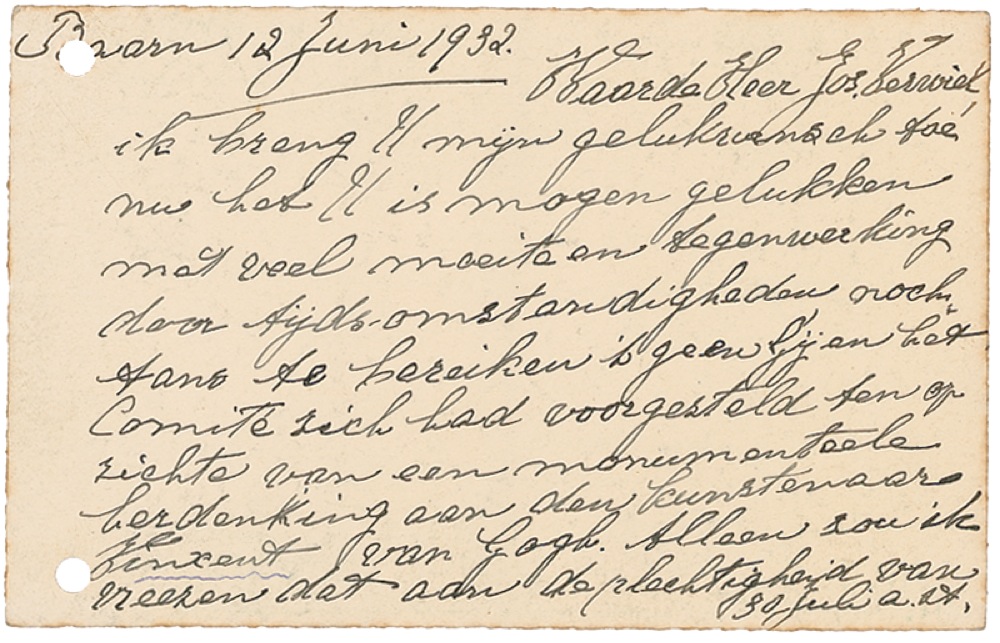 Baarn 12 Juni 1932.
Waarde Heer Jos. Verwiel
ik breng U mijn gelukwensch toe
nu het U is mogen gelukken
met veel moeite en tegenwerking
door tijds-omstandigheden noch-
tans te bereiken 't geen Gij en het
Comité zich had voorgesteld ten op
zichte van een monumenteele
herdenking aan den kunstenaar
Vinxent van Gogh. Alleen zou ik
vreezen dat aan de plechtigheid van
30 Juli a.st.